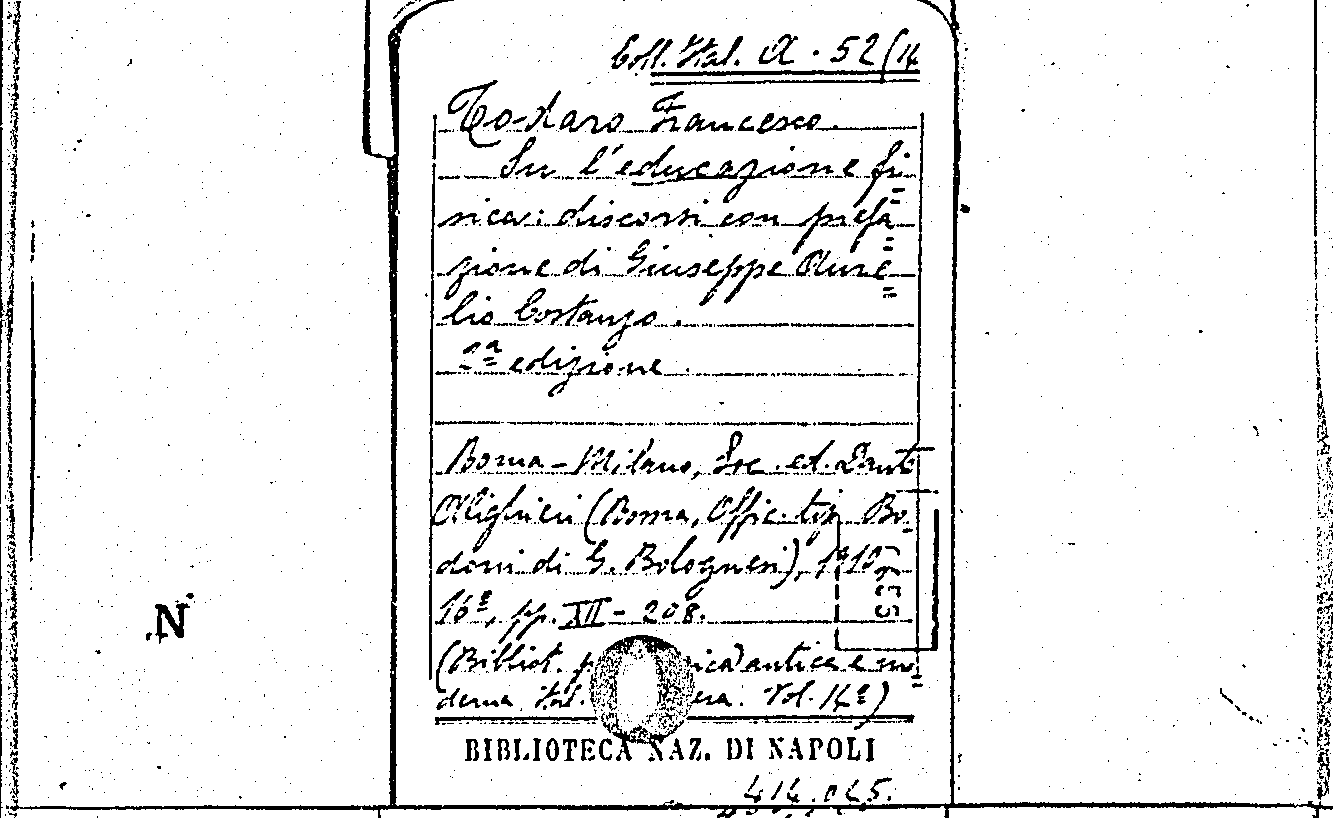 Coll. Ital. A. 52(14
Todaro Francesco.
Su l'educazione fi=
sica: discorsi con prefa=
zione di Giuseppe Aure=
lio Costanzo.
2ª edizione.
Roma-Milano, Soc. ed. Dante
Alighieri (Roma, Offic. tip. Bo=
doni di G. Bolognesi), 1910
16º, pp. XII-208.
(Bibliot. antica e mo=
derna ital. Vol. 14º)
BIBLIOTECA NAZ. DI NAPOLI
414.045.
N